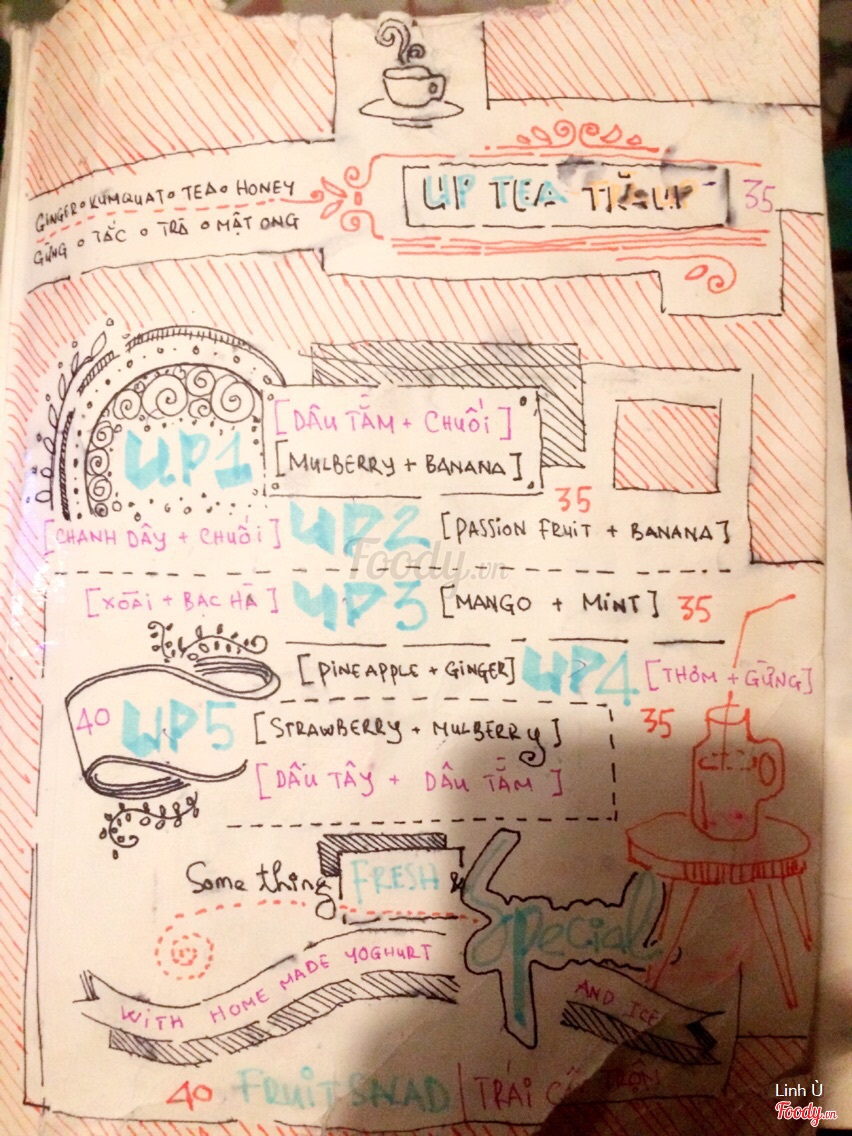 GINGER • KUMQUAT • TEA • HONEY
GỪNG • TẮC • TRÀ • MẬT ONG
UP TEA TRÀ UP 35
UP1 [DÂU TẰM + CHUỐI]
[MULBERRY + BANANA]
35
[CHANH DÂY + CHUỐI] UP2 [PASSION FRUIT + BANANA]
Foody.vn
[XOÀI + BẠC HÀ] UP3 [MANGO + MINT] 35
[PINEAPPLE + GINGER] UP4 [THƠM + GỪNG]
35
40 UP5 [STRAWBERRY + MULBERRY]
[DÂU TÂY + DÂU TẰM]
Some thing FRESH & Special
WITH HOME MADE YOGHURT AND ICE
40 FRUIT SALAD | TRÁI CÂY TRỘN
Linh Ù
Foody.vn